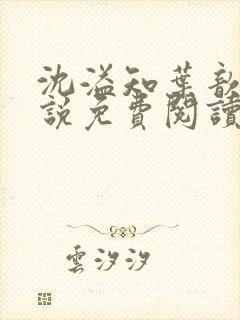 沈溢知葉歆
說免費閱讀
雲汐汐